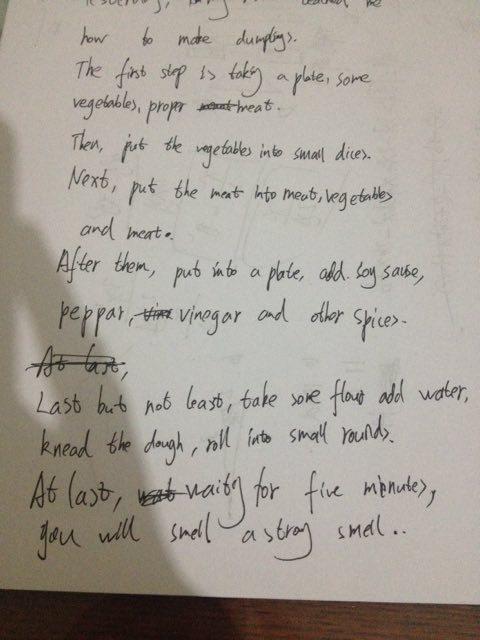 how to make dumplings.
The first step is taking a plate, some
vegetables, proper meat.
Then, put the vegetables into small dices.
Next, put the meat into meat, vegetables
and meat.
After them, put into a plate, add soy sause,
peppar, vinegar and other spices.
At last,
Last but not least, take some flour add water,
knead the dough, roll into small rounds.
At last, waitg for five minutes,
you will smell a strong smell..